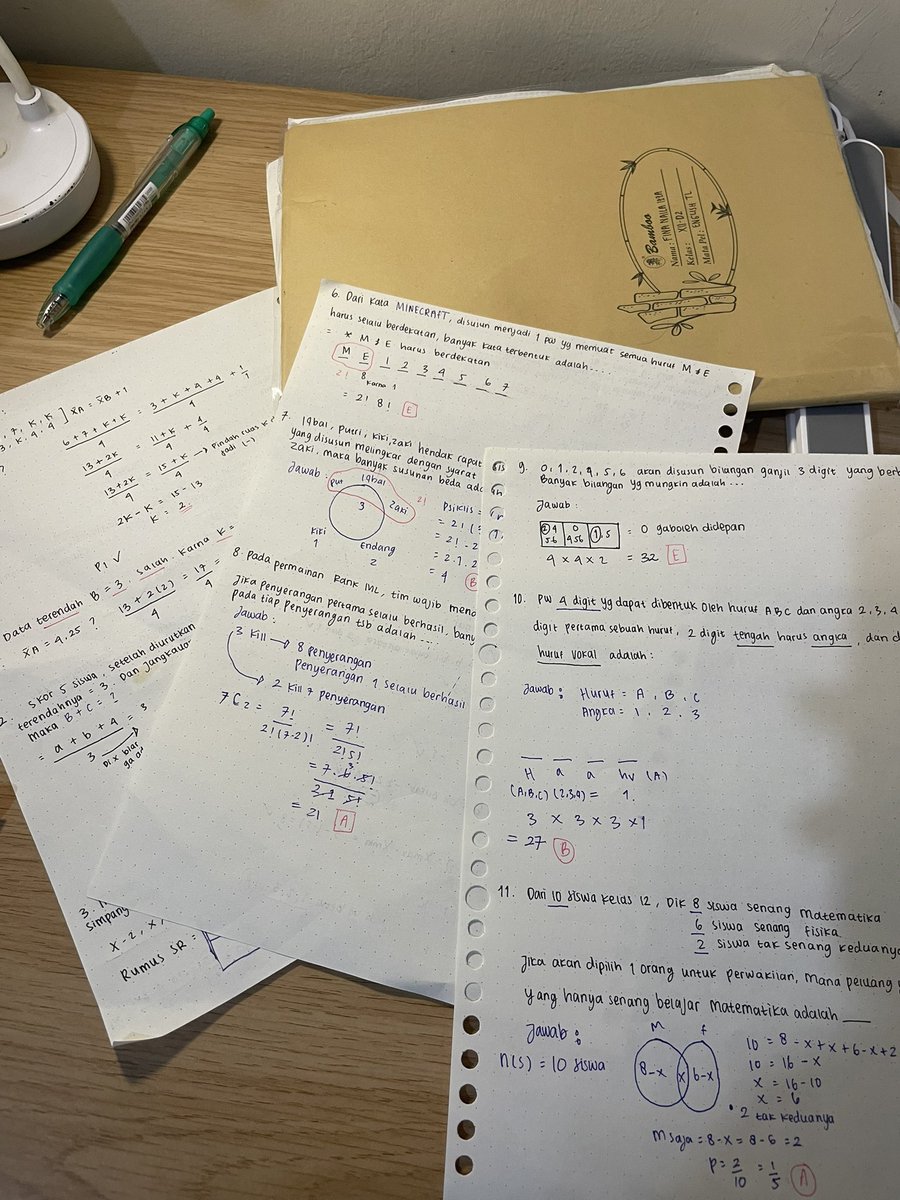 Bamboo
Nama: FINA NAILA IZZA
Kelas: XII-D2
Mata Pel: ENGLISH TL
] x̄A = x̄B + 1
6+7+K+K / 4 = 3+K+4+4 / 4 + 1/1
13+2K / 4 = 11+K / 4 + 4/4
13+2K / 4 = 15+K / 4 → Pindah ruas
jadi (-)
2K-K = 15-13
K = 2
P1 V
Data terendah B = 3. Salah. Karna K =
x̄A = 4.25 ? 13+2(2) / 4 = 17 / 4 =
2. Skor 5 siswa, setelah diurutkan
terendahnya = 3. Dan jangkauan
Maka B+C = ?
= a+b+4 / 3 = 3
3.
simpang
x-2, x,
Rumus SR =
6. Dari kata MINECRAFT, disusun menjadi 1 pw yg memuat semua huruf M & E
harus selalu berdekatan, banyak kata terbentuk adalah....
= * M & E harus berdekatan
M E 1 2 3 4 5 6 7
2! 8
karna 1
= 2! 8! E
7. Iqbal, Putri, Kiki, Zaki hendak rapat
yang disusun melingkar dengan syarat
Zaki. maka banyak susunan beda ada
Jawab:
Put Iqbal Zaki 2!
3
Kiki
1
Endang
2
Psiklis =
= 2! (
= 2! . 2
= 2.1.2
= 4 B
8. Pada permainan Rank ML, tim wajib
Jika penyerangan pertama selalu berhasil, bany
pada tiap penyerangan tsb adalah ...
Jawab:
3 Kill → 8 penyerangan
Penyerangan 1 selalu berhasil
→ 2 Kill 7 penyerangan
7C2 = 7! / 2!(7-2)! = 7! / 2!5!
= 7.6.5! / 2.1 5!
3
= 21 A
9. 0, 1, 2, 4, 5, 6 akan disusun bilangan ganjil 3 digit yang ber
Banyak bilangan yg mungkin adalah ...
Jawab:
2 4 5 6 | 0 4 5 6 | 1, 5 = 0 gaboleh didepan
4 x 4 x 2 = 32 E
10. PW 4 digit yg dapat dibentuk oleh huruf ABC dan angka 2, 3, 4
digit pertama sebuah huruf, 2 digit tengah harus angka, dan d
huruf vokal adalah:
Jawab: Huruf = A, B, C
Angka = 1, 2, 3
H a a hv (A)
(A,B,C) (2,3,4) = 1.
3 x 3 x 3 x 1
= 27 B
11. Dari 10 siswa kelas 12, Dik 8 siswa senang matematika
6 siswa senang fisika
2 siswa tak senang keduanya
Jika akan dipilih 1 orang untuk perwakilan, Mana peluang
yang hanya senang belajar matematika adalah ___
Jawab:
n(s) = 10 siswa
M F
8-x x 6-x
2 tak keduanya
10 = 8-x+x+6-x+2
10 = 16-x
x = 16-10
x = 6
M saja = 8-x = 8-6 = 2
P = 2/10 = 1/5 A